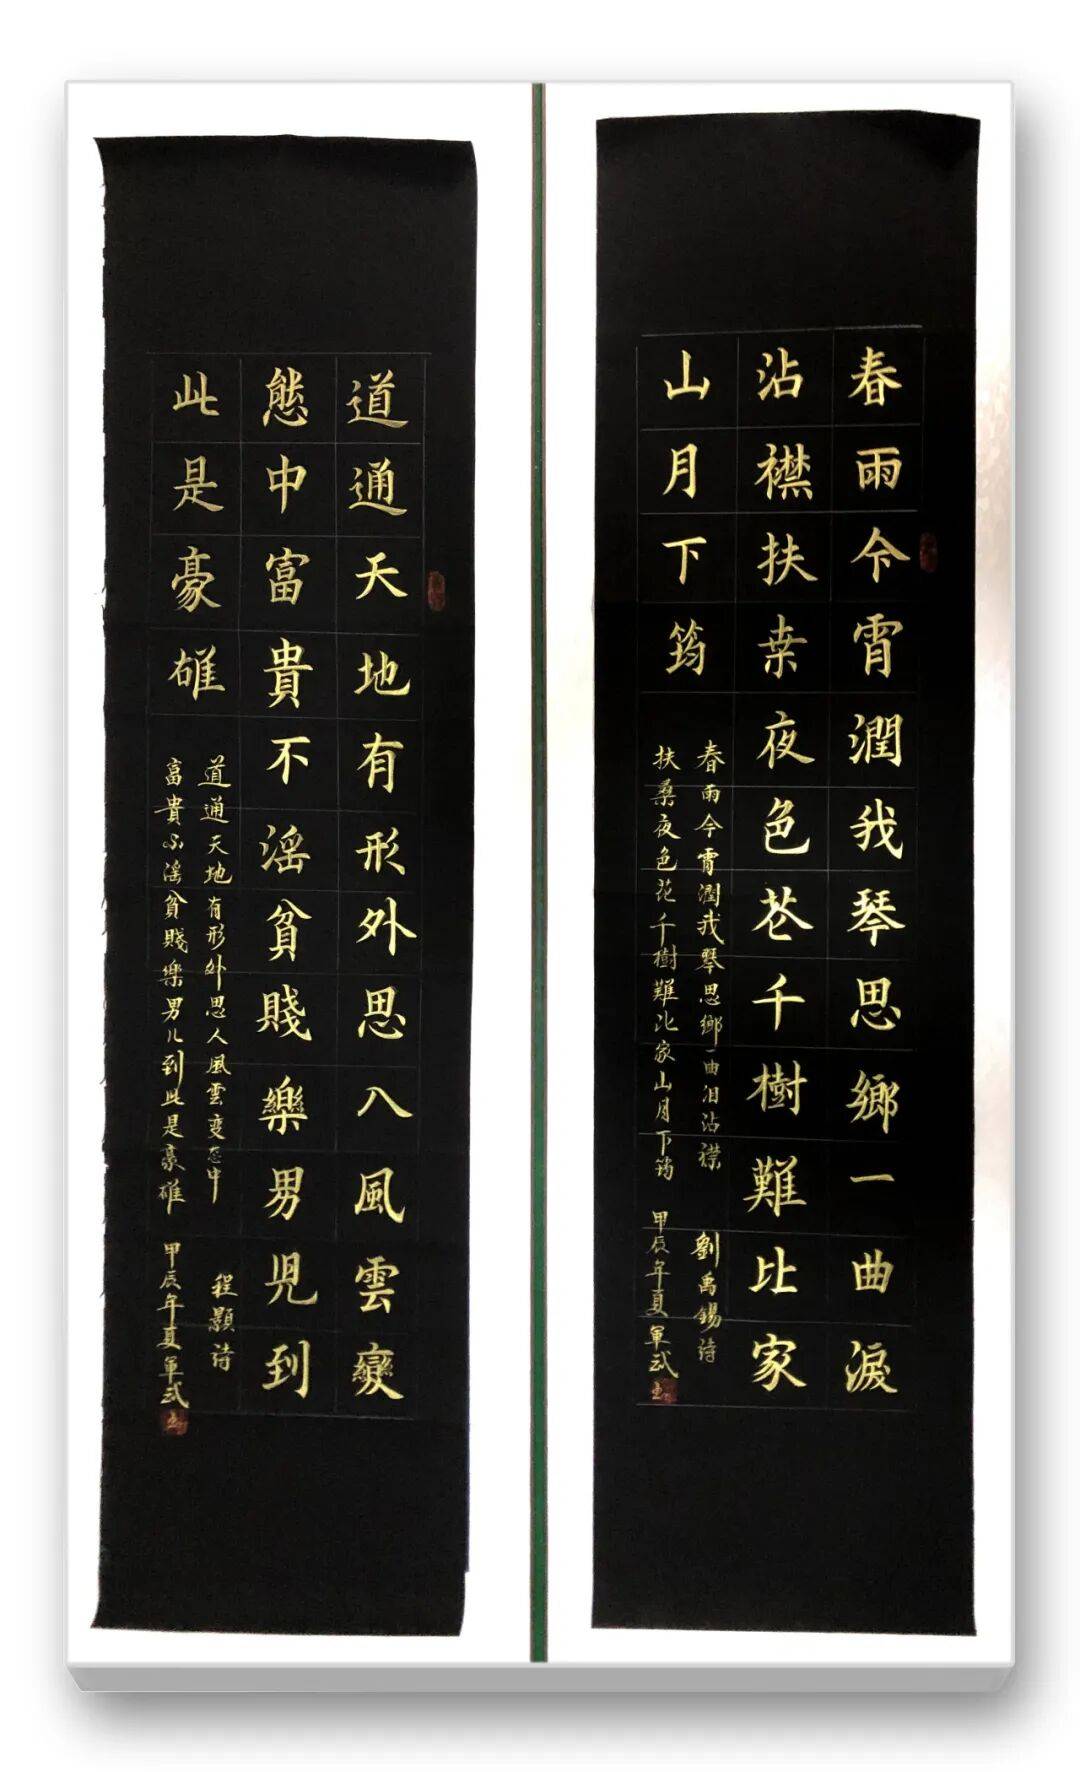 春雨今霄潤我琴思鄉一曲淚
沾襟扶桒夜色花千樹難比家
山月下筠
春雨今霄潤我琴思鄉一曲泪沾襟
扶桑夜色花千樹難比家山月下筠
劉禹錫诗
甲辰年夏軍武
道通天地有形外思入風雲變
態中富貴不淫貧賤樂男兒到
此是豪雄
道通天地有形外思入風雲变态中
富貴不淫貧賤樂男儿到此是豪雄
程顥诗
甲辰年夏軍武